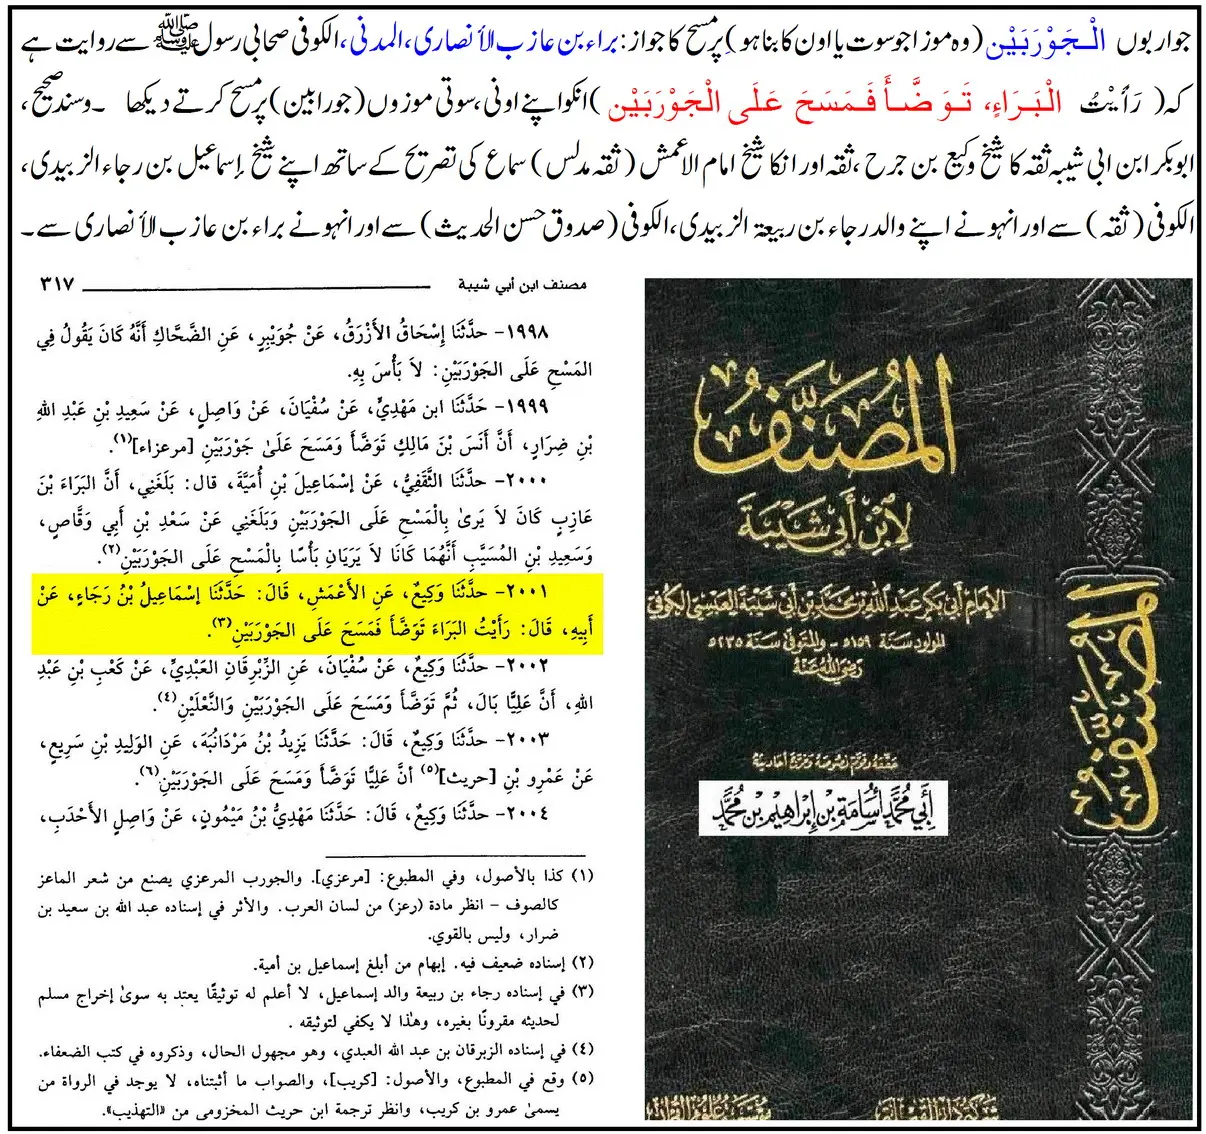 جواربوں الْجَوْرَبَيْن (وہ موزا جو سوت یا اون کا بنا ہو) پر مسح کا جواز: براء بن عازب الأنصاری، المدنی، الکوفی صحابی رسول ﷺ سے روایت ہے
کہ ( رَأَيْتُ الْبَرَاءِ، تَوَضَّأَ فَمَسَحَ عَلَى الْجَوْرَبَيْن ) انکو اپنے اونی، سوتی موزوں (جورابین) پر مسح کرتے دیکھا ۔ وسندہ صحیح،
ابوبکر ابن ابی شیبہ ثقہ کا شیخ وکیع بن جرح، ثقہ اور انکا شیخ امام الاعمش ( ثقہ مدلس) سماع کی تصریح کے ساتھ اپنے شیخ إسماعيل بن رجاء الزبیدی،
الکوفی ( ثقہ ) سے اور انہو نے اپنے والد رجاء بن ربیعة الزبیدی، الکوفی (صدوق حسن الحدیث) سے اور انہو نے براء بن عازب الأنصاری سے۔
مصنف ابن أبي شيبة ٣١٧
١٩٩٨- حدَّثَنَا إِسْحَاقُ الأَزْرَقُ، عَنْ جُوَيْبِرٍ، عَنِ الضَّحَّاكِ أَنَّهُ كَانَ يَقُولُ فِي
المَسْحِ عَلَى الجَوْرَبَيْنِ: لاَ بَأْسَ بِهِ.
١٩٩٩- حَدَّثَنَا ابن مَهْدِيٍّ، عَنْ سُفْيَانَ، عَنْ وَاصِلٍ، عَنْ سَعِيدِ بْنِ عَبْدِ اللهِ
بْنِ ضِرَارٍ، أَنَّ أَنَسَ بْنَ مَالِكٍ تَوَضَّأَ وَمَسَحَ عَلَىٰ جَوْرَبَيْنِ [مرعزاء](١).
٢٠٠٠- حدَّثَنَا الثَّقَفِيُّ، عَنْ إِسْمَاعِيلَ بْنِ أُمَيَّةَ، قال: بَلَغَنِي، أَنَّ البَرَاءَ بْنَ
عَازِبٍ كَانَ لاَ يَرىٰ بِالْمَسْحِ عَلَى الجَوْرَبَيْنِ وَبَلَغَنِي عَنْ سَعْدِ بْنِ أَبِي وَقَّاصٍ،
وَسَعِيدِ بْنِ المُسَيَّبِ أَنَّهُمَا كَانَا لاَ يَرَيَانِ بَأْسًا بِالْمَسْحِ عَلَى الجَوْرَبَيْنِ(٢).
٢٠٠١- حدَّثَنَا وَكِيعٌ، عَنِ الأَعْمَشِ، قَالَ: حَدَّثَنَا إسْمَاعِيلُ بْنُ رَجَاءٍ، عَنْ
أَبِيهِ، قَالَ: رَأَيْتُ البَرَاءَ تَوَضَّأَ فَمَسَحَ عَلَى الجَوْرَبَيْنِ(٣).
٢٠٠٢- حدَّثَنَا وَكِيعٌ، عَنْ سُفْيَانَ، عَنِ الزِّبْرِقَانِ العَبْدِيِّ، عَنْ كَعْبِ بْنِ عَبْدِ
اللهِ، أَنَّ عَلِيًّا بَالَ، ثُمَّ تَوَضَّأَ وَمَسَحَ عَلَى الجَوْرَبَيْنِ وَالنَّعْلَيْنِ(٤).
٢٠٠٣- حدَّثَنَا وَكِيعٌ، قَالَ: حَدَّثَنَا يَزِيدُ بْنُ مَرْدَانُبَةَ، عَنِ الوَلِيدِ بْنِ سَرِيعٍ،
عَنْ عَمْرِو بْنِ [حريث](٥) أنَّ عَلِيًّا تَوَضَّأَ وَمَسَحَ عَلَى الجَوْرَبَيْنِ(٦).
٢٠٠٤- حدَّثَنَا وَكِيعٌ، قَالَ: حَدَّثَنَا مَهْدِيُّ بْنُ مَيْمُونٍ، عَنْ وَاصِلٍ الأَحْدَبِ،
(١) كذا بالأصول، وفي المطبوع: [مرعزي]. والجورب المرعزي يصنع من شعر الماعز
كالصوف - انظر مادة (رعز) من لسان العرب. والأثر في إسناده عبد الله بن سعيد بن
ضرار، وليس بالقوي.
(٢) إسناده ضعيف فيه. إبهام من أبلغ إسماعيل بن أمية.
(٣) في إسناده رجاء بن ربيعة والد إسماعيل، لا أعلم له توثيقًا يعتد به سوىٰ إخراج مسلم
لحديثه مقرونًا بغيره، وهٰذا لا يكفي لتوثيقه .
(٤) في إسناده الزبرقان بن عبد الله العبدي، وهو مجهول الحال، وذكروه في كتب الضعفاء.
(٥) وقع في المطبوع، والأصول: [كريب]، والصواب ما أثبتناه، لا يوجد في الرواة من
يسمىٰ عمرو بن كريب، وانظر ترجمة ابن حريث المخزومى من «التهذيب».
المُصَنَّفُ
لِابْنِ أَبِي شَيْبَةَ
الإمام أبي بكر عبد الله بن محمد بن أبي شيبة العبسي الكوفي
المولود سنة ١٥٩هـ - والمتوفى سنة ٢٣٥هـ
رضي الله عنه
أَبِي مُحَمَّد أُسَامَة بن إبْرَاهِيْم بن مُحَمَّد
المصنف